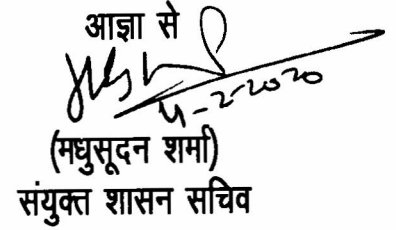 आज्ञा से
4-2-2020
(मधुसूदन शर्मा)
संयुक्त शासन सचिव